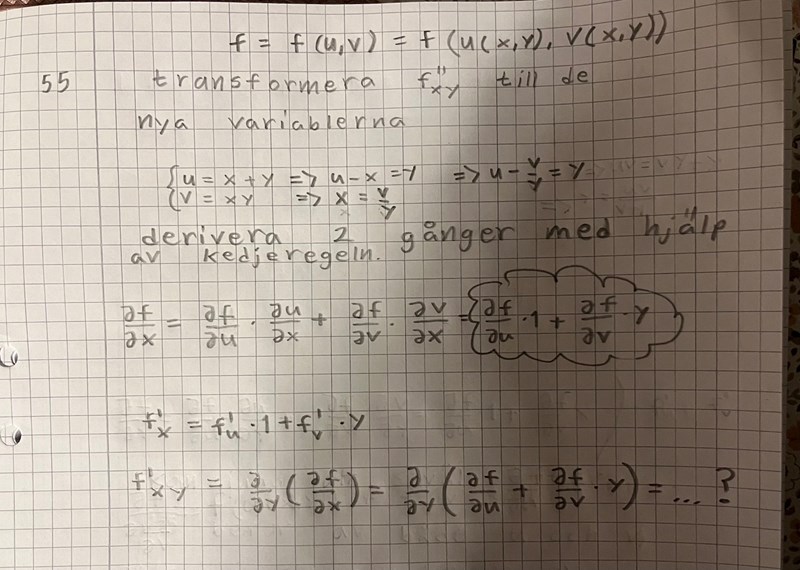 f = f(u,v) = f(u(x,y), v(x,y))
55 transformera f''xy till de
nya variablerna
{u = x + y <=> u - x = y <=> u - v/y = y
{v = yx <=> x = v/y
derivera 2 gånger med hjälp
av kedjeregeln.
∂f/∂x = ∂f/∂u · ∂u/∂x + ∂f/∂v · ∂v/∂x = {∂f/∂u · 1 + ∂f/∂v · y
f'x = f'u · 1 + f'v · y
f''xy = ∂/∂y (∂f/∂x) = ∂/∂y (∂f/∂u + ∂f/∂v · y) = ... ?